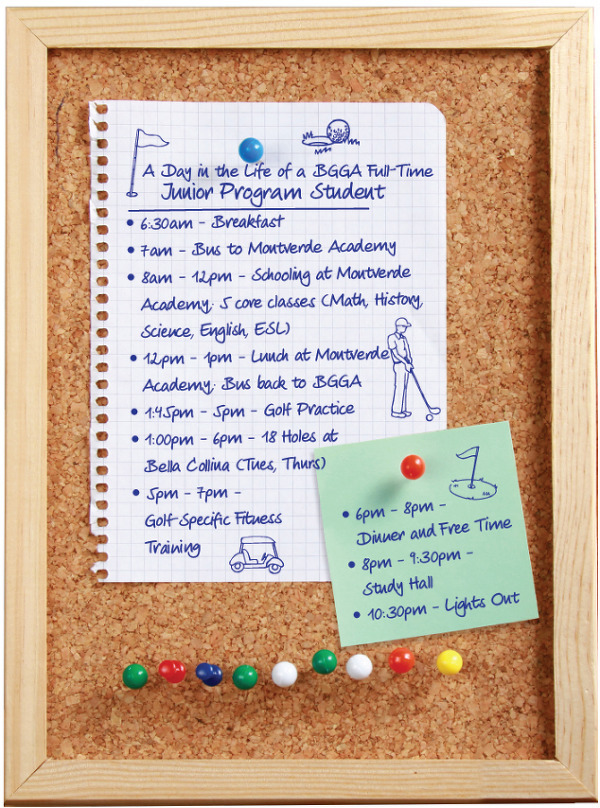 A Day in the Life of a BGGA Full-Time
Junior Program Student
• 6:30am - Breakfast
• 7am - Bus to Montverde Academy
• 8am - 12pm - Schooling at Montverde
Academy; 5 core classes (Math, History,
Science, English, ESL)
• 12pm - 1pm - Lunch at Montverde
Academy; Bus back to BGGA
• 1:45pm - 5pm - Golf Practice
• 1:00pm - 6pm - 18 Holes at
Bella Collina (Tues, Thurs)
• 5pm - 7pm -
Golf-Specific Fitness
Training
• 6pm - 8pm -
Dinner and Free Time
• 8pm - 9:30pm -
Study Hall
• 10:30pm - Lights Out